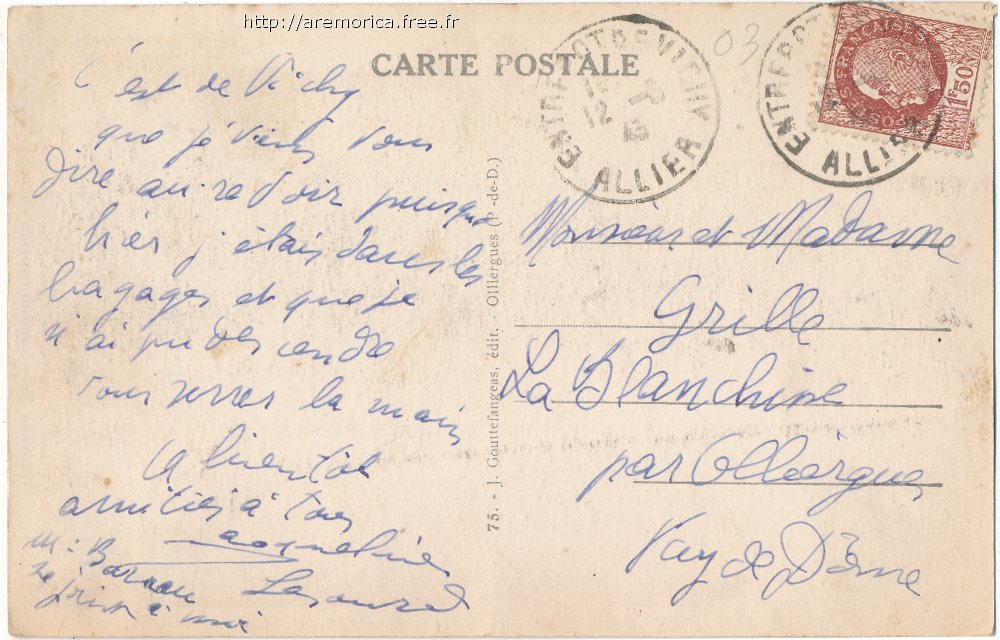 http://aremorica.free.fr
CARTE POSTALE
C'est de Vichy
que je viens vous
dire au revoir puisque
hier j'étais dans les
bagages et que je
n'ai pu descendre
vous serrer la main
A bientôt
amitiés à tous
Jacqueline
M:
se joint à moi
75. - J. Gouttefangeas, édit. - Olliergues (P.-de-D.)
ENTREPOT DE VICHY
12
ALLIER
03
ENTREPOT
ALLIER
POSTES FRANÇAISES
1F50
Monsieur et Madame
Grille
La Blanchine
par Olliergues
Puy de Dôme